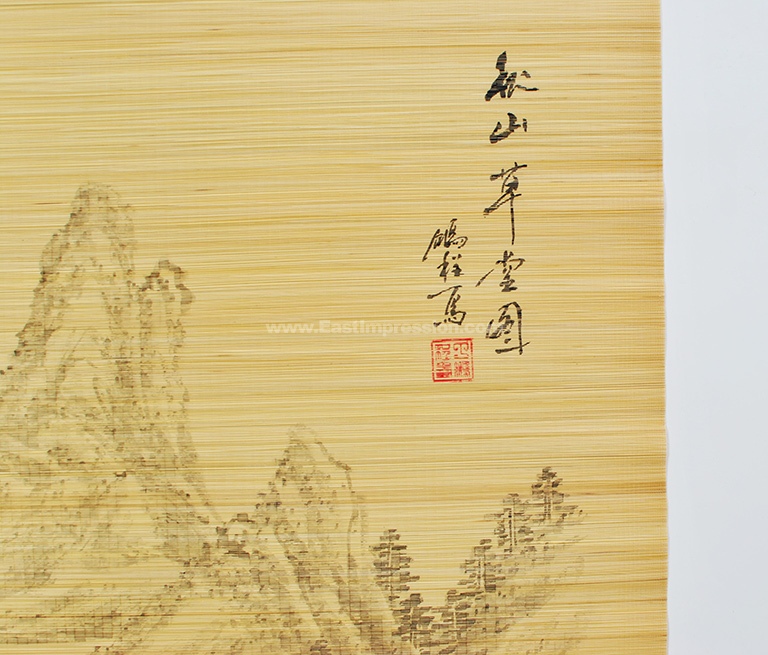 秋山草堂图
鹏程写
www.EastImpression.com